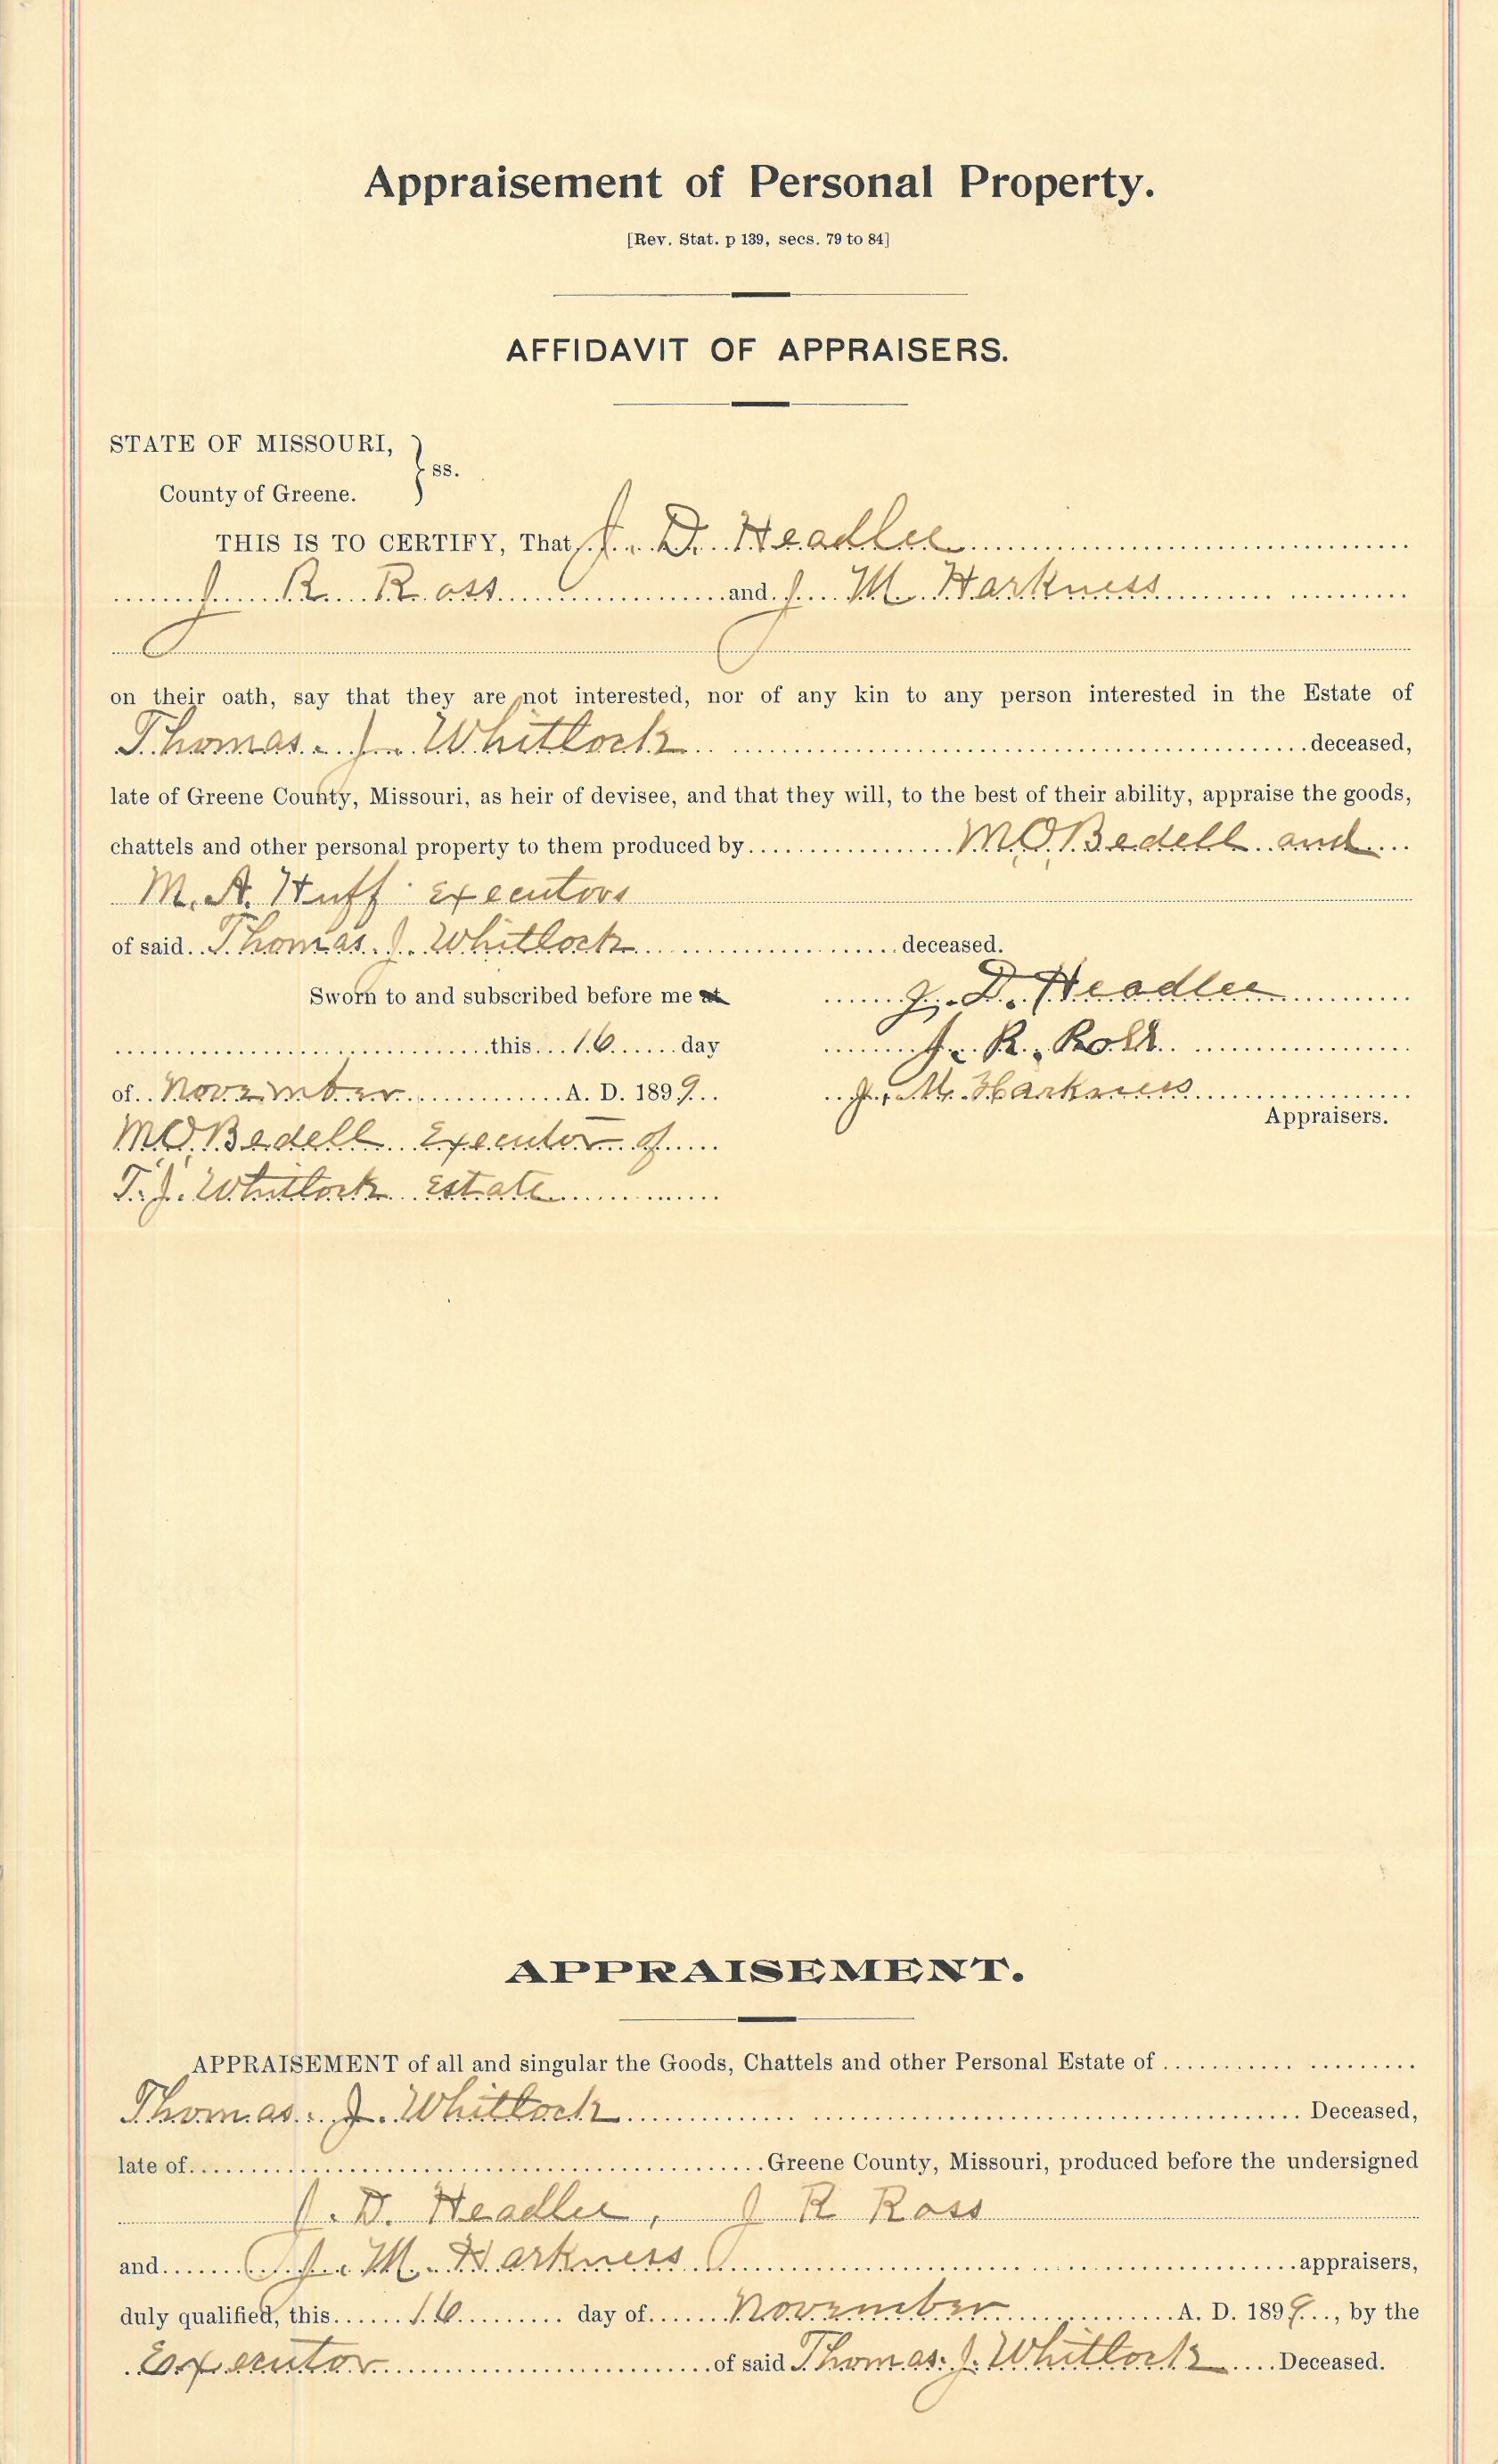 Appraisement of Personal Property.
[Rev. Stat. p 139, secs. 79 to 84]
AFFIDAVIT OF APPRAISERS.
STATE OF MISSOURI,
ss.
County of Greene.
THIS IS TO CERTIFY, That J. D. Headlee
J. R. Ross and J. M. Harkness
on their oath, say that they are not interested, nor of any kin to any person interested in the Estate of
Thomas. J. Whitlock deceased,
late of Greene County, Missouri, as heir of devisee, and that they will, to the best of their ability, appraise the goods,
chattels and other personal property to them produced by M.O. Bedell and
M. A. Huff Executors
of said Thomas. J. Whitlock deceased.
Sworn to and subscribed before me at J. D. Headlee
this 16 day J. R. Ross
of November A. D. 1899 J. M. Harkness
Appraisers.
M.O. Bedell Executor of
T. J. Whitlock Estate
APPRAISEMENT.
APPRAISEMENT of all and singular the Goods, Chattels and other Personal Estate of
Thomas. J. Whitlock Deceased,
late of Greene County, Missouri, produced before the undersigned
J. D. Headlee, J R Ross
and J. M. Harkness appraisers,
duly qualified, this 16 day of November A. D. 1899, by the
Executor of said Thomas. J. Whitlock Deceased.